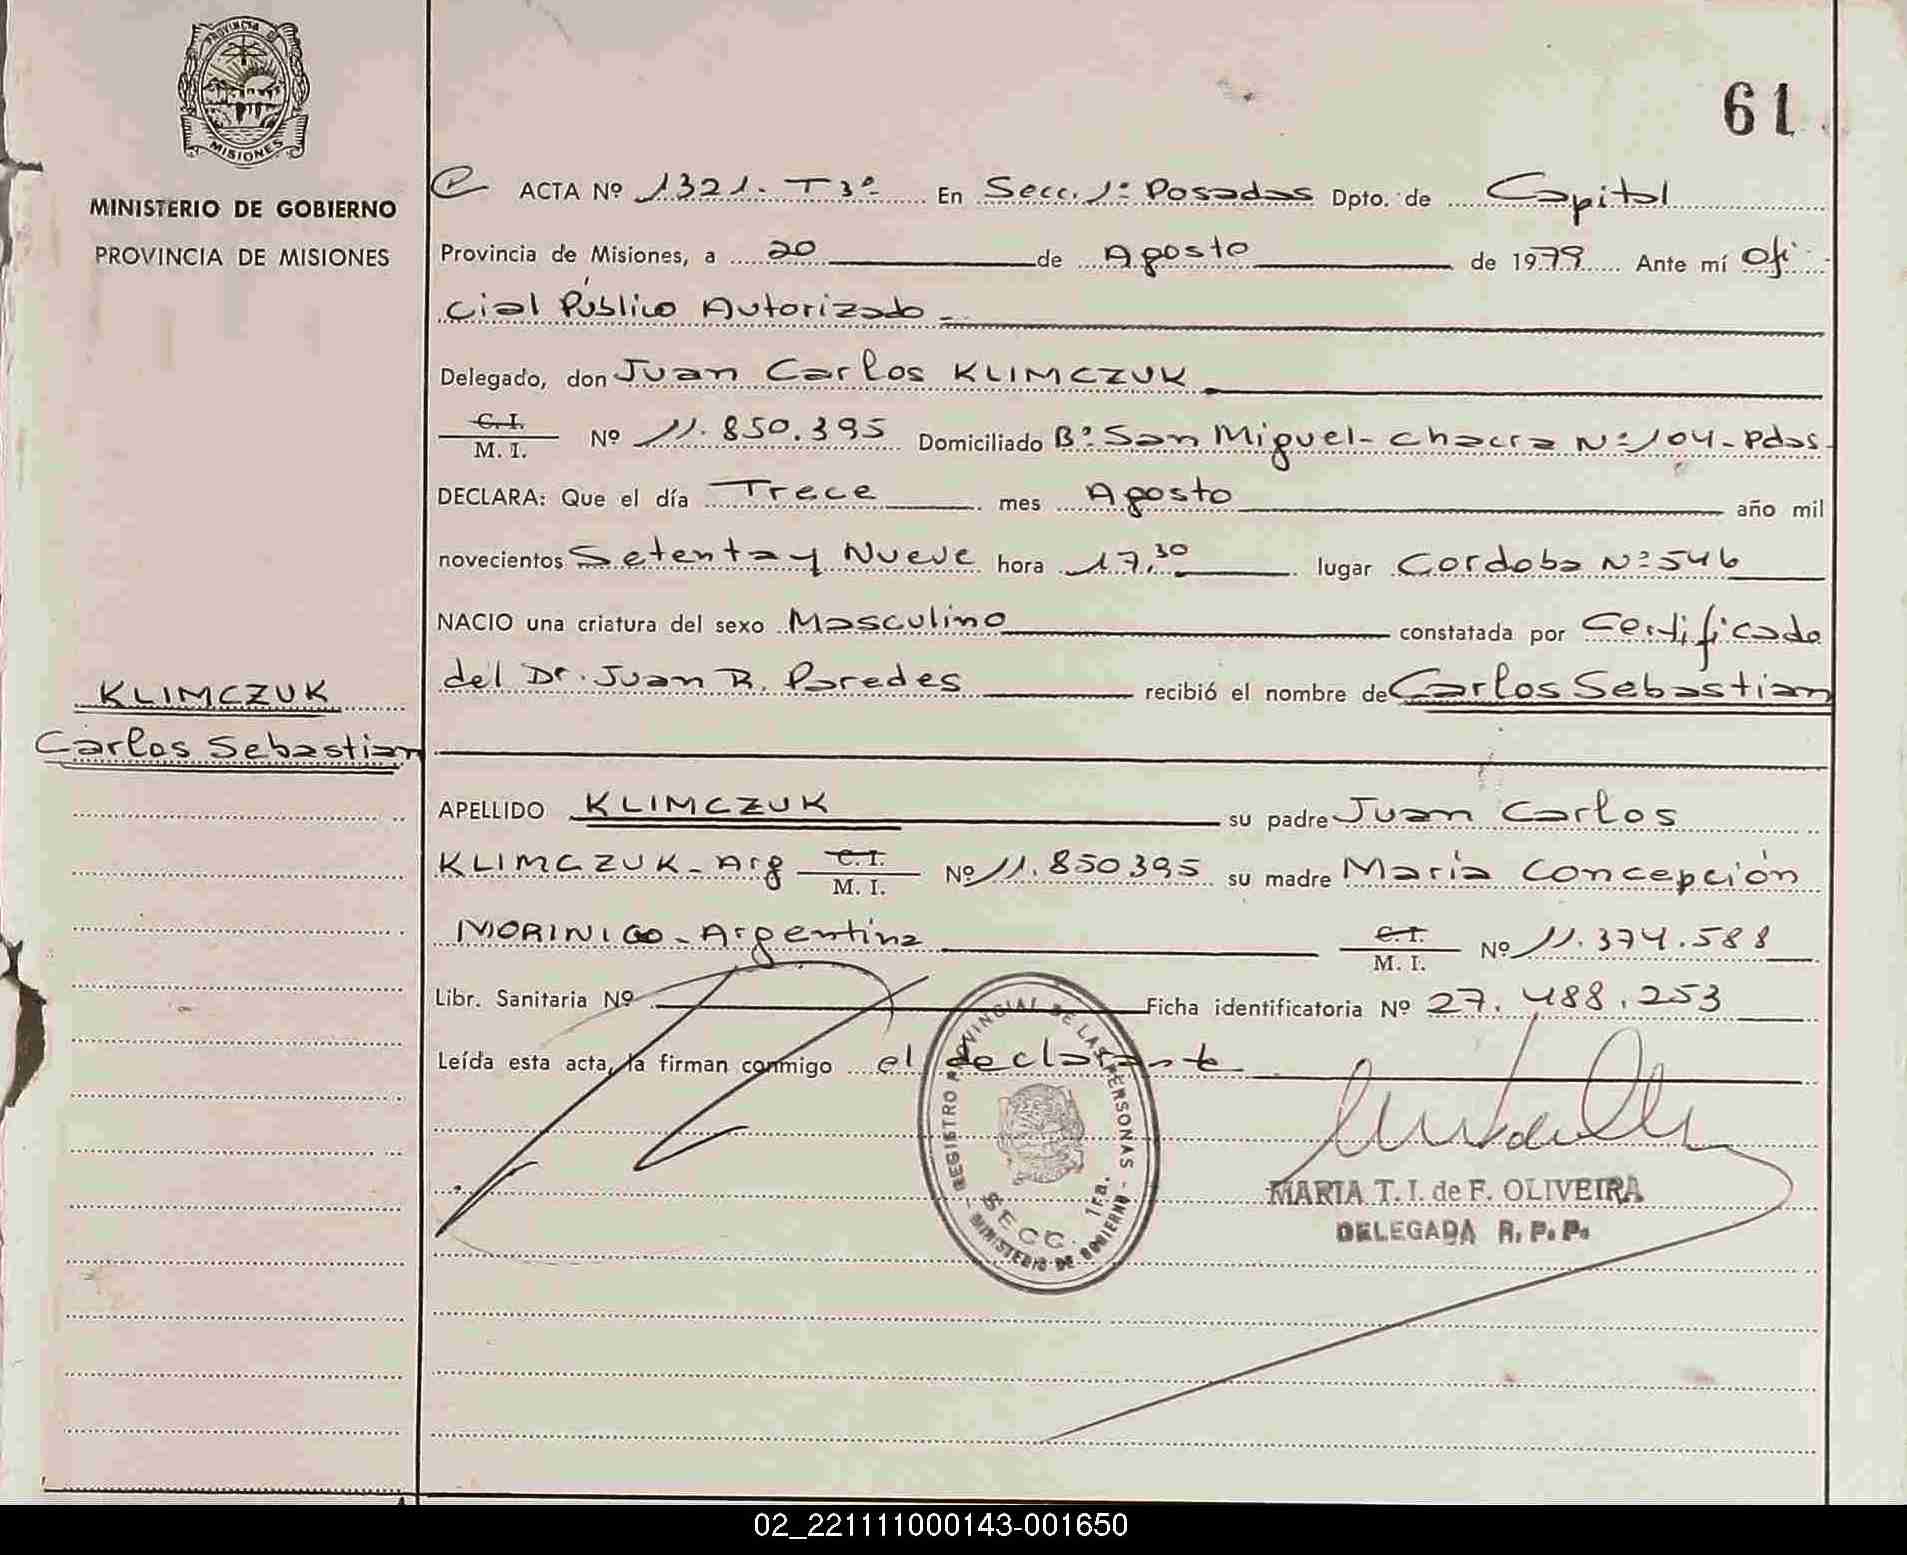 PROVINCIA DE
MISIONES
MINISTERIO DE GOBIERNO
PROVINCIA DE MISIONES
KLIMCZUK
Carlos Sebastian
61
ACTA Nº 1321- T 3º- En Secc. 1ª Posadas Dpto. de Capital
Provincia de Misiones, a 20 de Agosto de 1979 Ante mí Ofi
cial Público Autorizado -
Delegado, don Juan Carlos KLIMCZUK
C. I.
M. I. Nº 11.850.395 Domiciliado Bº San Miguel- chacra Nº 104- Pdas-
DECLARA: Que el día Trece mes Agosto año mil
novecientos Setenta y Nueve hora 17,30 lugar Cordoba Nº 546
NACIO una criatura del sexo Masculino constatada por Certificado
del Dr. Juan R. Paredes recibió el nombre de Carlos Sebastian
APELLIDO KLIMCZUK su padre Juan Carlos
KLIMCZUK- Arg C. I.
M. I. Nº 11.850.395 su madre María Concepción
MORINIGO- Argentina C. I.
M. I. Nº 11.374.588
Libr. Sanitaria Nº Ficha identificatoria Nº 27.488.253
Leída esta acta, la firman conmigo el declarante
REGISTRO PROVINCIAL DE LAS PERSONAS -
SECC. 1ra.
MINISTERIO DE GOBIERNO -
MARIA T. I. de F. OLIVEIRA
DELEGADA R. P. P.
02_221111000143-001650